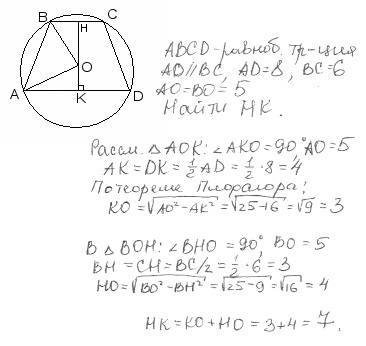 B H C
O
A K D
ABCD-равноб. тр-ция
AD//BC, AD=8, BC=6
AO=BO=5
Найти HK.
Рассм. △AOK: ∠AKO=90°, AO=5
AK=DK=½AD=½·8=4
По теореме Пифагора:
KO=√AO²-AK²=√25-16=√9=3
В △BOH: ∠BHO=90°, BO=5
BH=CH=BC/2=½·6=3
HO=√BO²-BH²=√25-9=√16=4
HK=KO+HO=3+4=7.